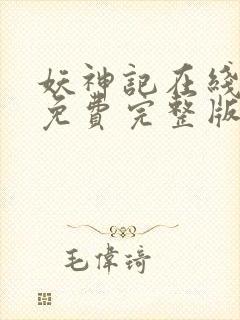 妖神記在綫
免費完整版
毛偉琦